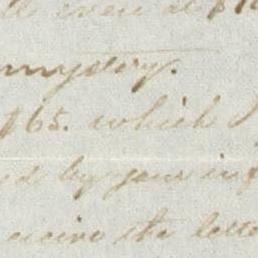 even at $1
mystery.
$65. which I
by your inf
receive the lette